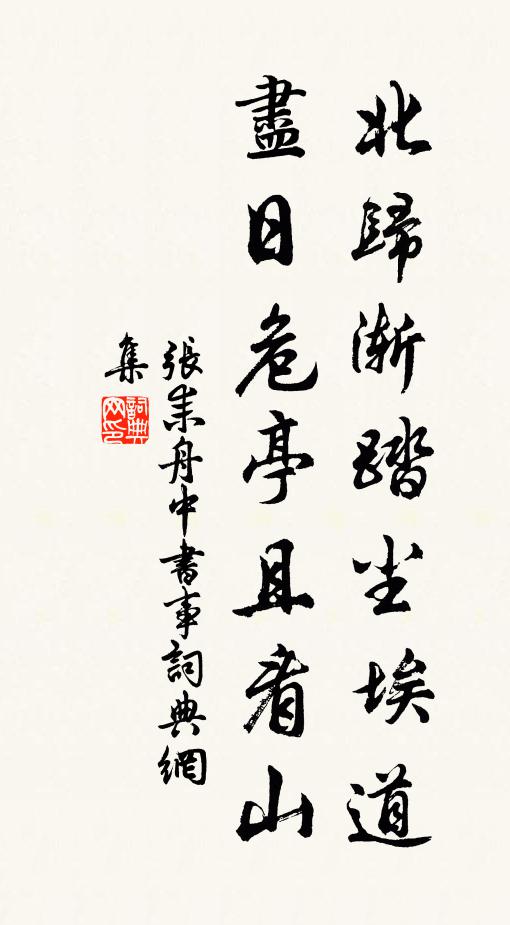 北歸漸踏尘埃道
盡日危亭且看山
張耒舟中書事詞典網
集
詞典
网印